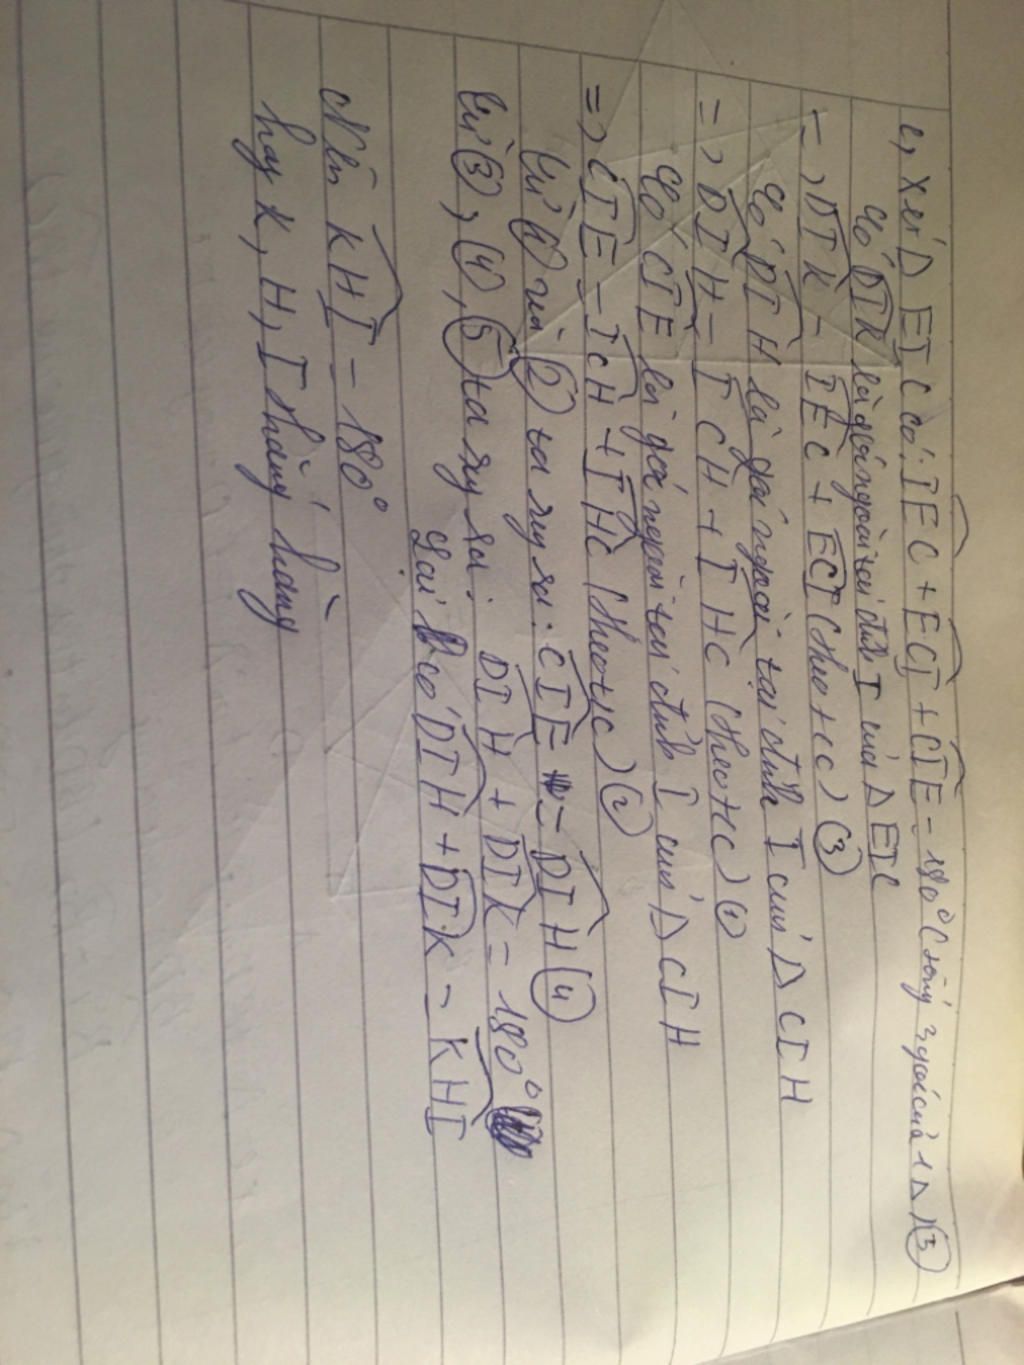 c, Xét Δ EIC có: IEC + ECI + CIE = 180° (tổng 3 góc của 1 Δ) (3)
Có DIK là góc ngoài tại đỉnh I của Δ EIC
=> DIK = IEC + ECI (theo tc) (3)
Có DIH là góc ngoài tại đỉnh I của Δ CIH
=> DIH = ICH + IHC (theo tc) (1)
Có CIE là góc ngoài tại đỉnh I của Δ CIH
=> CIE = ICH + IHC (theo tc) (2)
Từ (1) và (2) ta suy ra: CIE = DIH (4)
Từ (3), (4), (5) ta suy ra: DIH + DIK = 180°
Lại có DIH + DIK = KHI
Nên KHI = 180°
hay K, H, I thẳng hàng